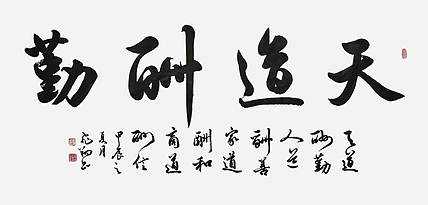 天道酬勤
天道
酬勤
人道
酬善
家道
酬和
商道
酬信
甲辰之
夏月